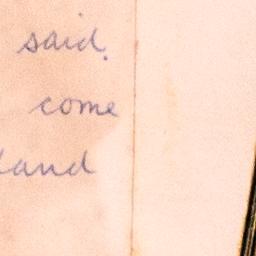 said.
come
land